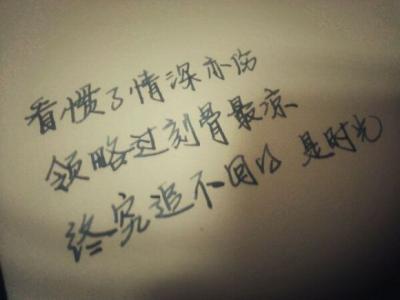 看惯了情深亦伤
领略过刻骨最凉
终究追不回的 是时光